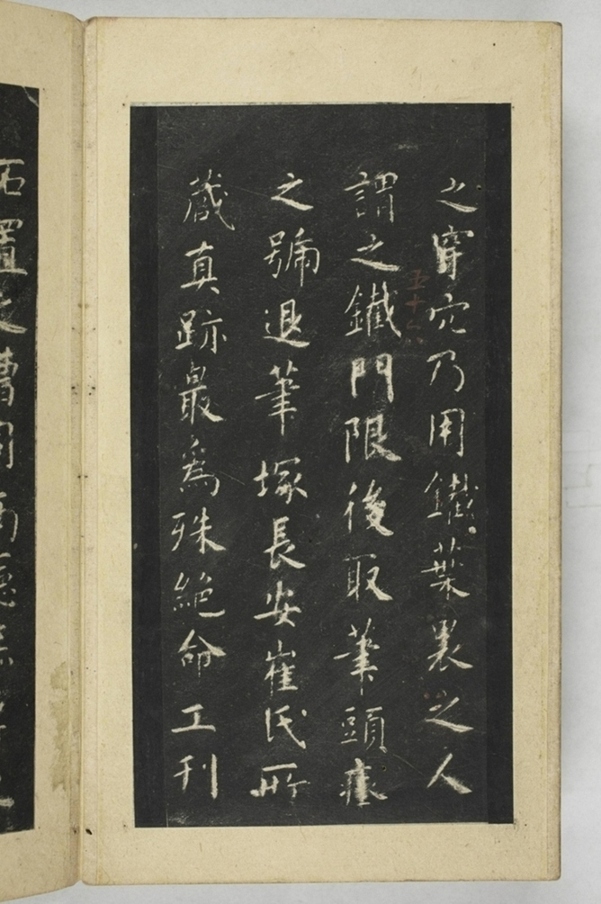 之穿穴乃用鐵葉裹之人
謂之鐵門限後取筆頭瘗
之號退筆塚長安崔氏所
藏真跡最為殊絶命工刊
五十六
石置之漕司南廳